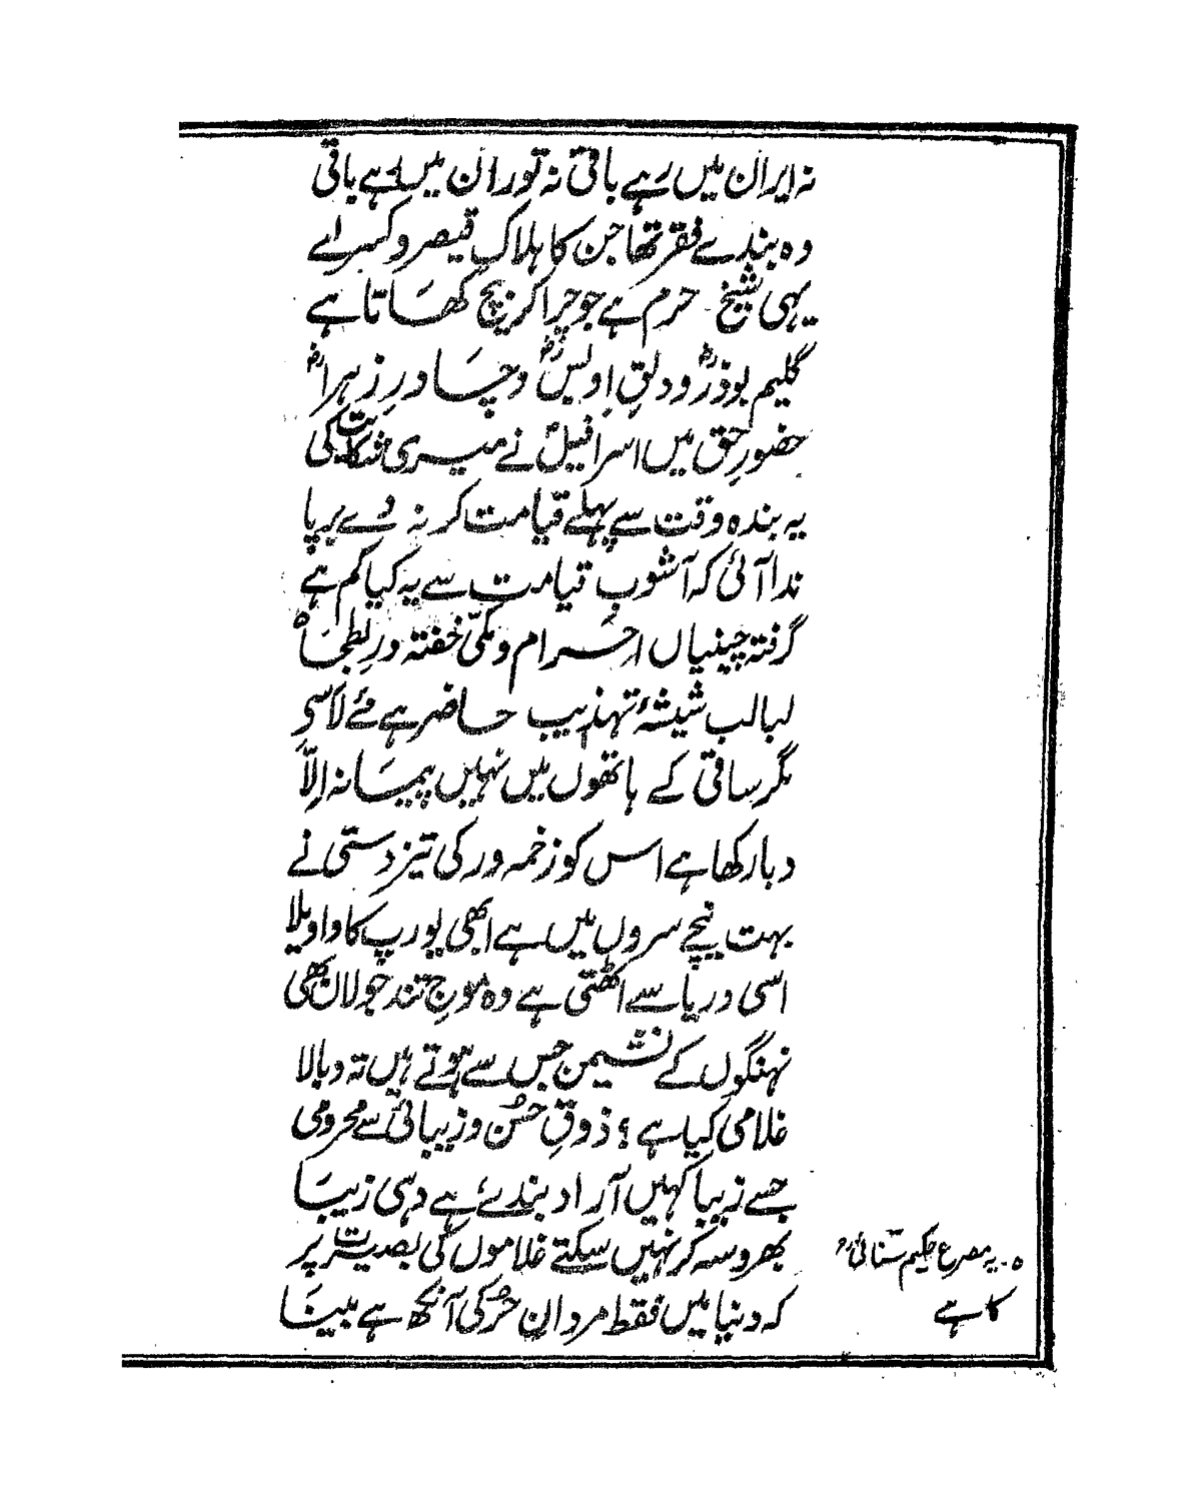 نہ ایران میں رہے باقی نہ توران میں رہے باقی
وہ بندے فقر تھا جن کا ہلاکِ قیصر و کسریٰ
یہی شیخِ حرم ہے جو چرا کر بیچ کھاتا ہے
گلیمِ بوذرؓ و دلقِ اویسؓ و چادرِ زہراؓ
حضورِ حق میں اسرافیلؑ نے میری شکایت کی
یہ بندہ وقت سے پہلے قیامت کر نہ دے برپا
ندا آئی کہ آشوبِ قیامت سے یہ کیا کم ہے
گرفتہ چینیاں احرام و مکیّ خفتہ در بطحا ہ
لبالب شیشۂ تہذیبِ حاضر ہے مئے لا سے
مگر ساقی کے ہاتھوں میں نہیں پیمانہ اِلّا
دبا رکھا ہے اس کو زخمہ ور کی تیز دستی نے
بہت نیچے سروں میں ہے ابھی یورپ کا واویلا
اسی دریا سے اٹھتی ہے وہ موجِ تند جولاں بھی
نہنگوں کے نشیمن جس سے ہوتے ہیں تہ و بالا
غلامی کیا ہے؟ ذوقِ حسُن و زیبائی سے محرومی
جسے زیبا کہیں آزاد بندے، ہے وہی زیبا
بھروسہ کر نہیں سکتے غلاموں کی بصیرت پر
کہ دنیا میں فقط مردانِ حُر کی آنکھ ہے بینا
ہ۔ یہ مصرع حکیم سنائیؒ
کا ہے